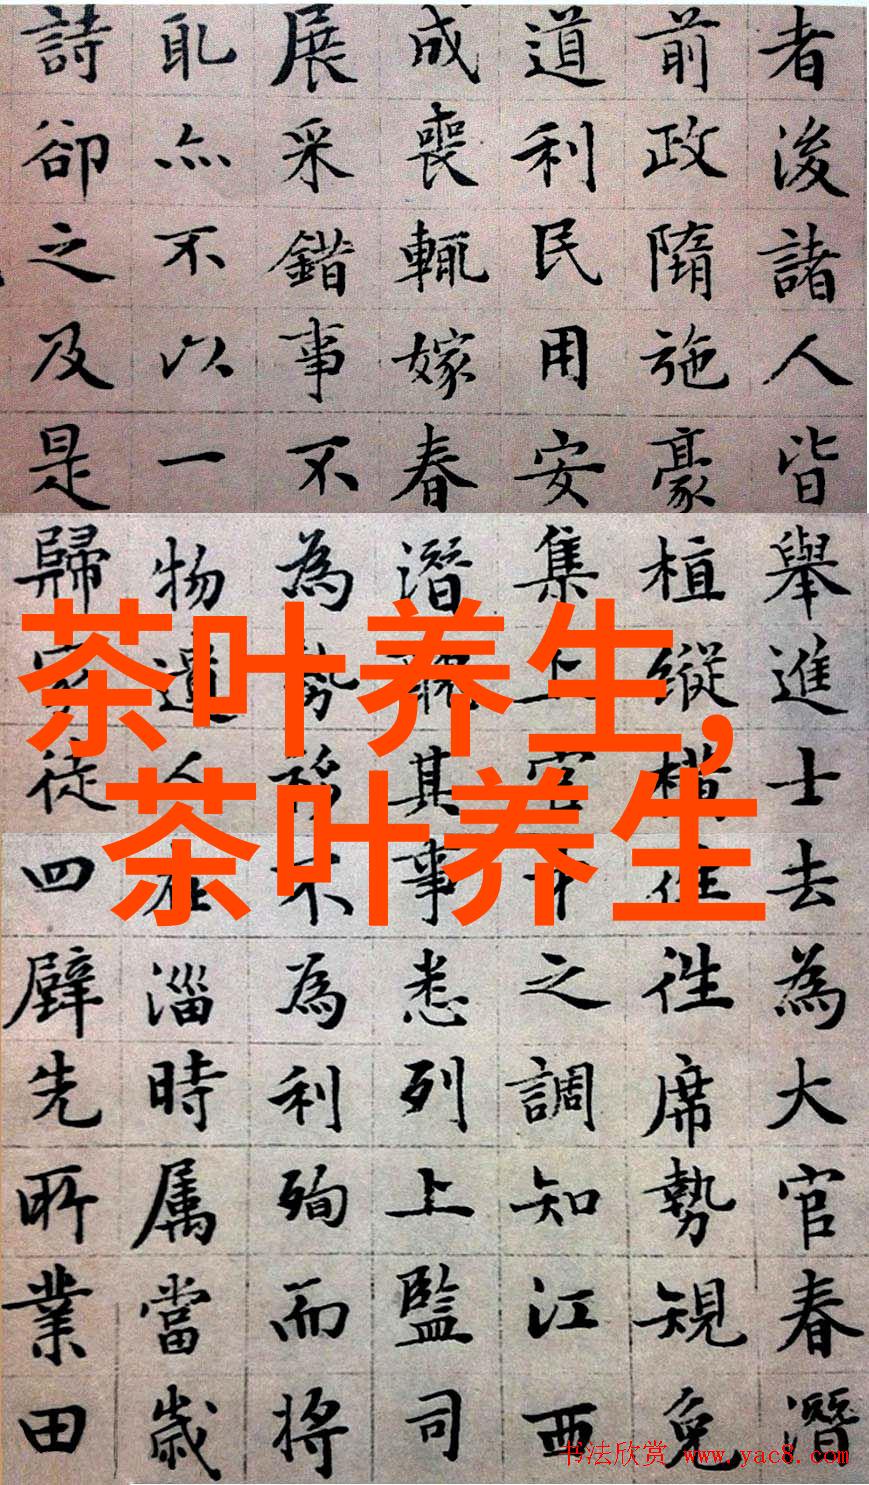 者後諸人皆舉進士去為大官春潛
前政隋施豪植縱橫往往席勢規免
道利民用安集上官下之調知江西
成喪輒嫁春潛其事悉列上監司
展采錯事不為勢移不為利殉而將
恥亦不以一物遺人在淄時属當歲
詩卻之及是歸家徒四壁先所業田
茶叶养生,
茶叶养生
书法欣赏 www.yac8.com